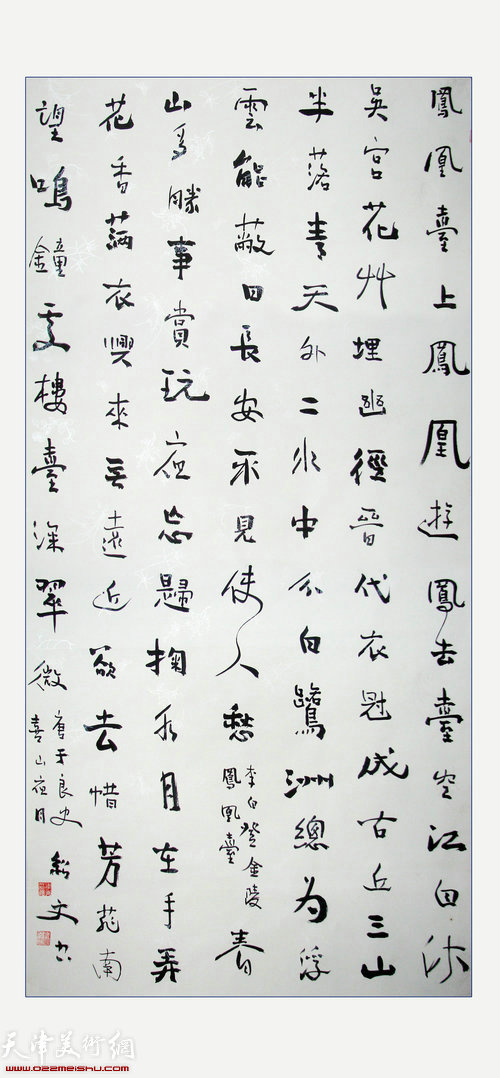 鳳凰臺上鳳凰遊鳳去臺空江自流
吳宮花艸埋幽徑晉代衣冠成古丘三山
半落青天外二水中分白鷺洲總为浮
雲能蔽日長安不見使人愁
李白登金陵
鳳凰臺
春
山多勝事賞玩夜忘歸掬水月在手弄
花香滿衣興來无遠近欲去惜芳菲南
望鳴鐘處樓臺深翠微
唐于良史
春山夜月
文书
天津美術網
www.022meishu.com